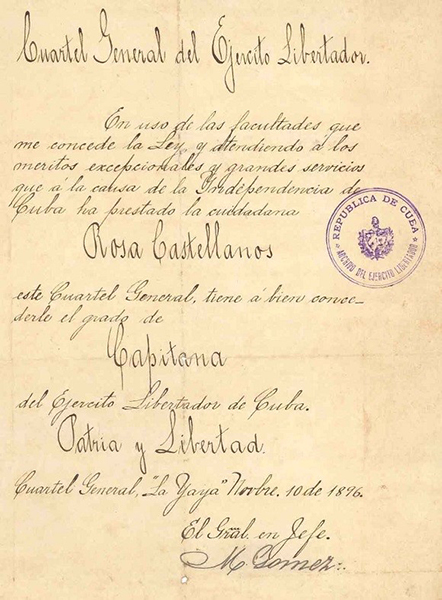 Cuartel General del Ejercito Libertador.
En uso de las facultades que
me concede la Ley, y atendiendo á los
meritos excepcionales y grandes servicios
que a la causa de la Independencia de
Cuba ha prestado la ciudadana
Rosa Castellanos
este Cuartel General, tiene á bien conce-
derle el grado de
Capitana
del Ejercito Libertador de Cuba.
Patria y Libertad.
Cuartel General, "La Yaya" Novbre. 10 de 1896.
El Gral. en Jefe.
M. Gomez.
REPUBLICA DE CUBA
ARCHIVO DEL EJERCITO LIBERTADOR